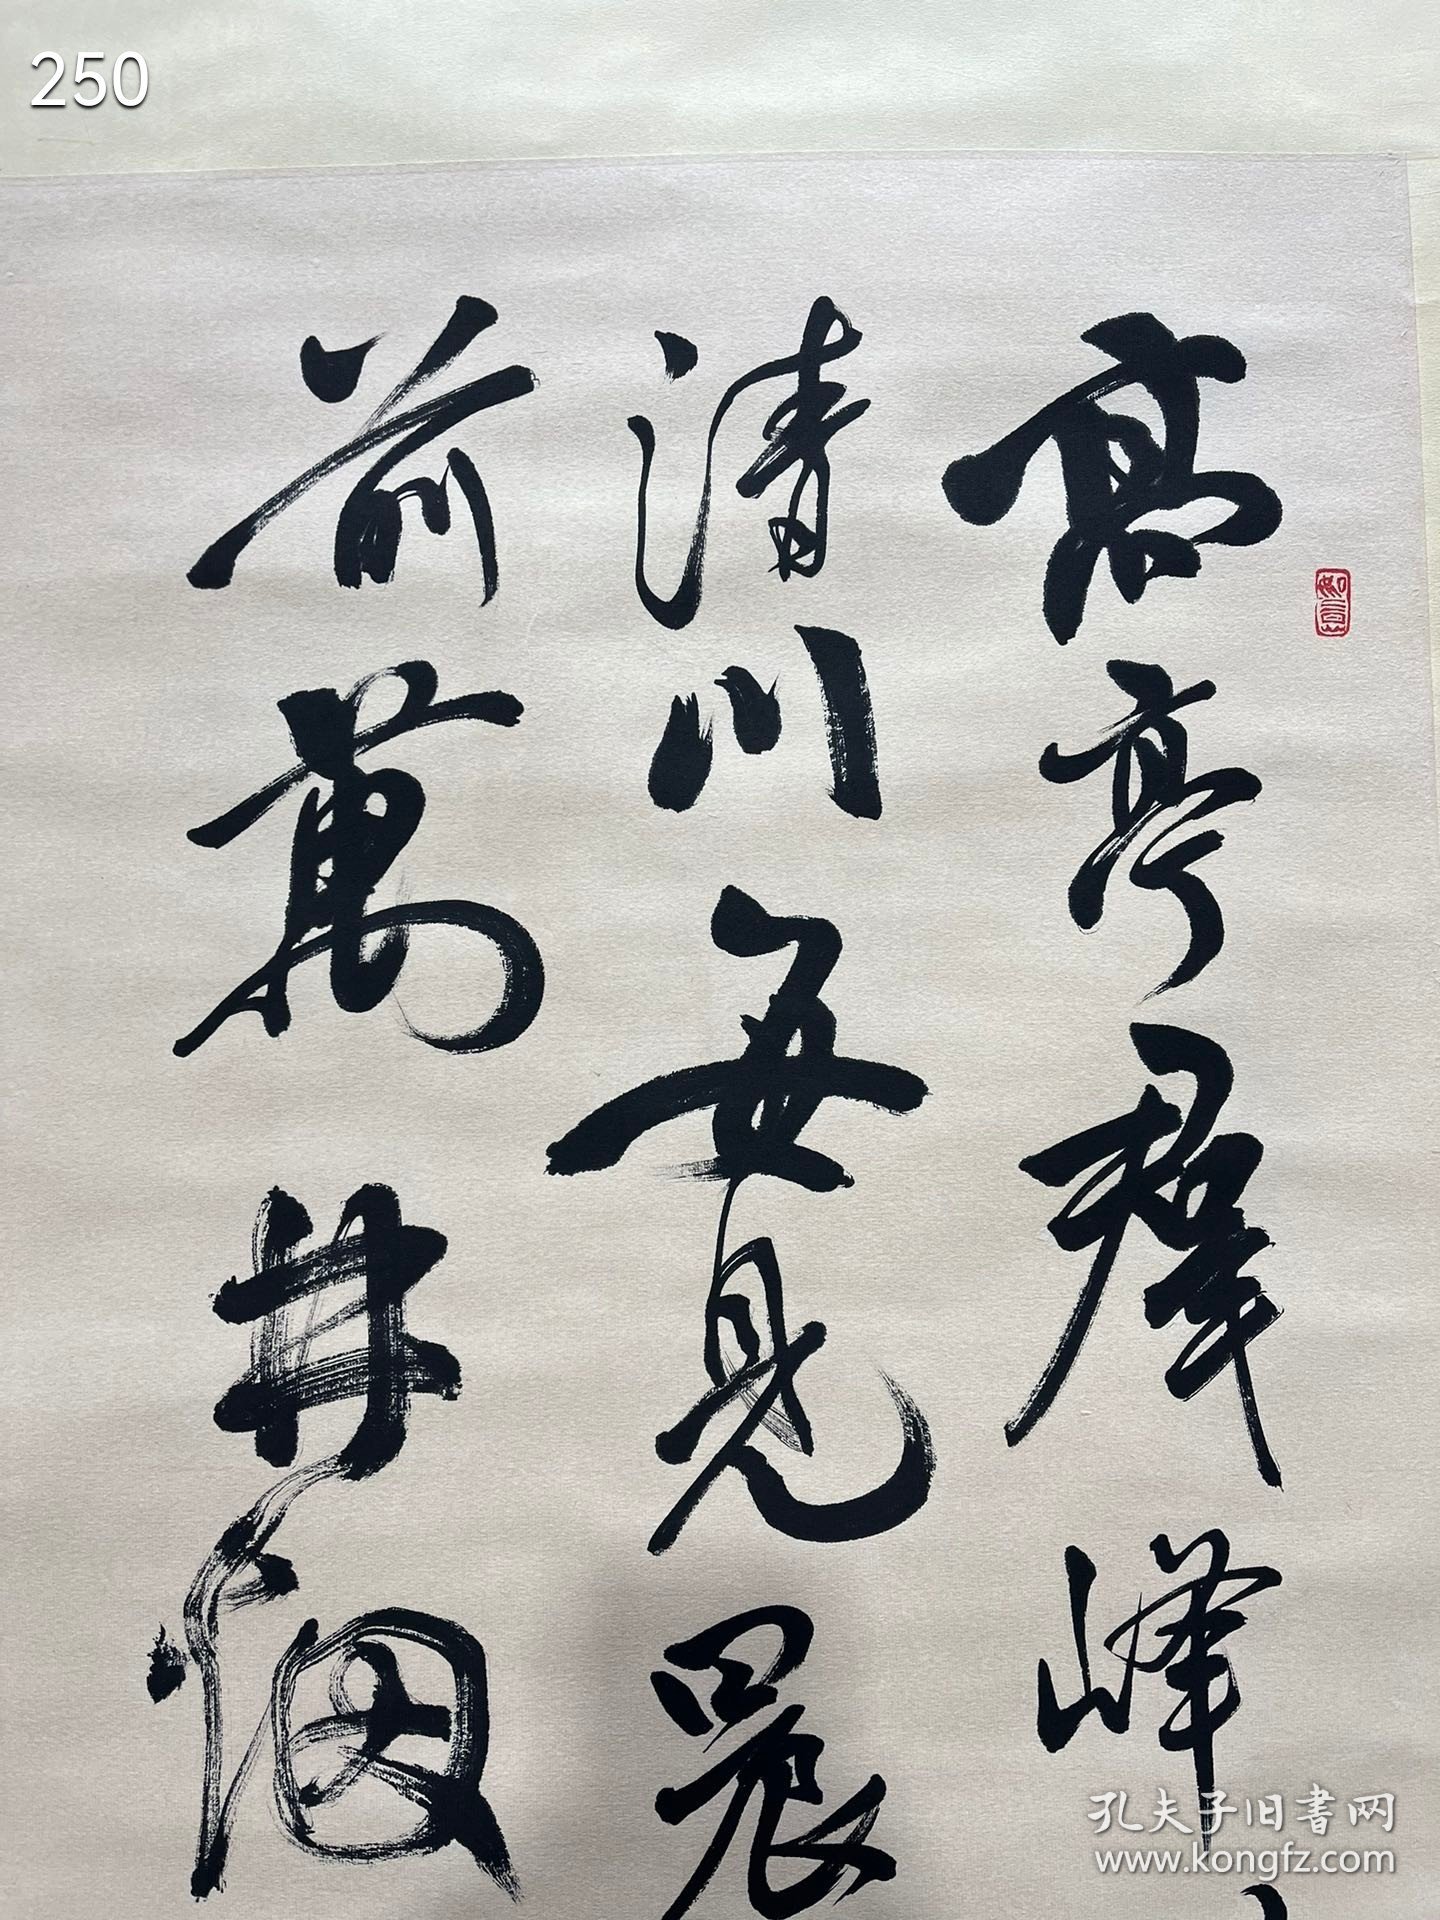 250
高亭群峰
清川每見晨
前萬井烟
孔夫子旧書网
www.kongfz.com